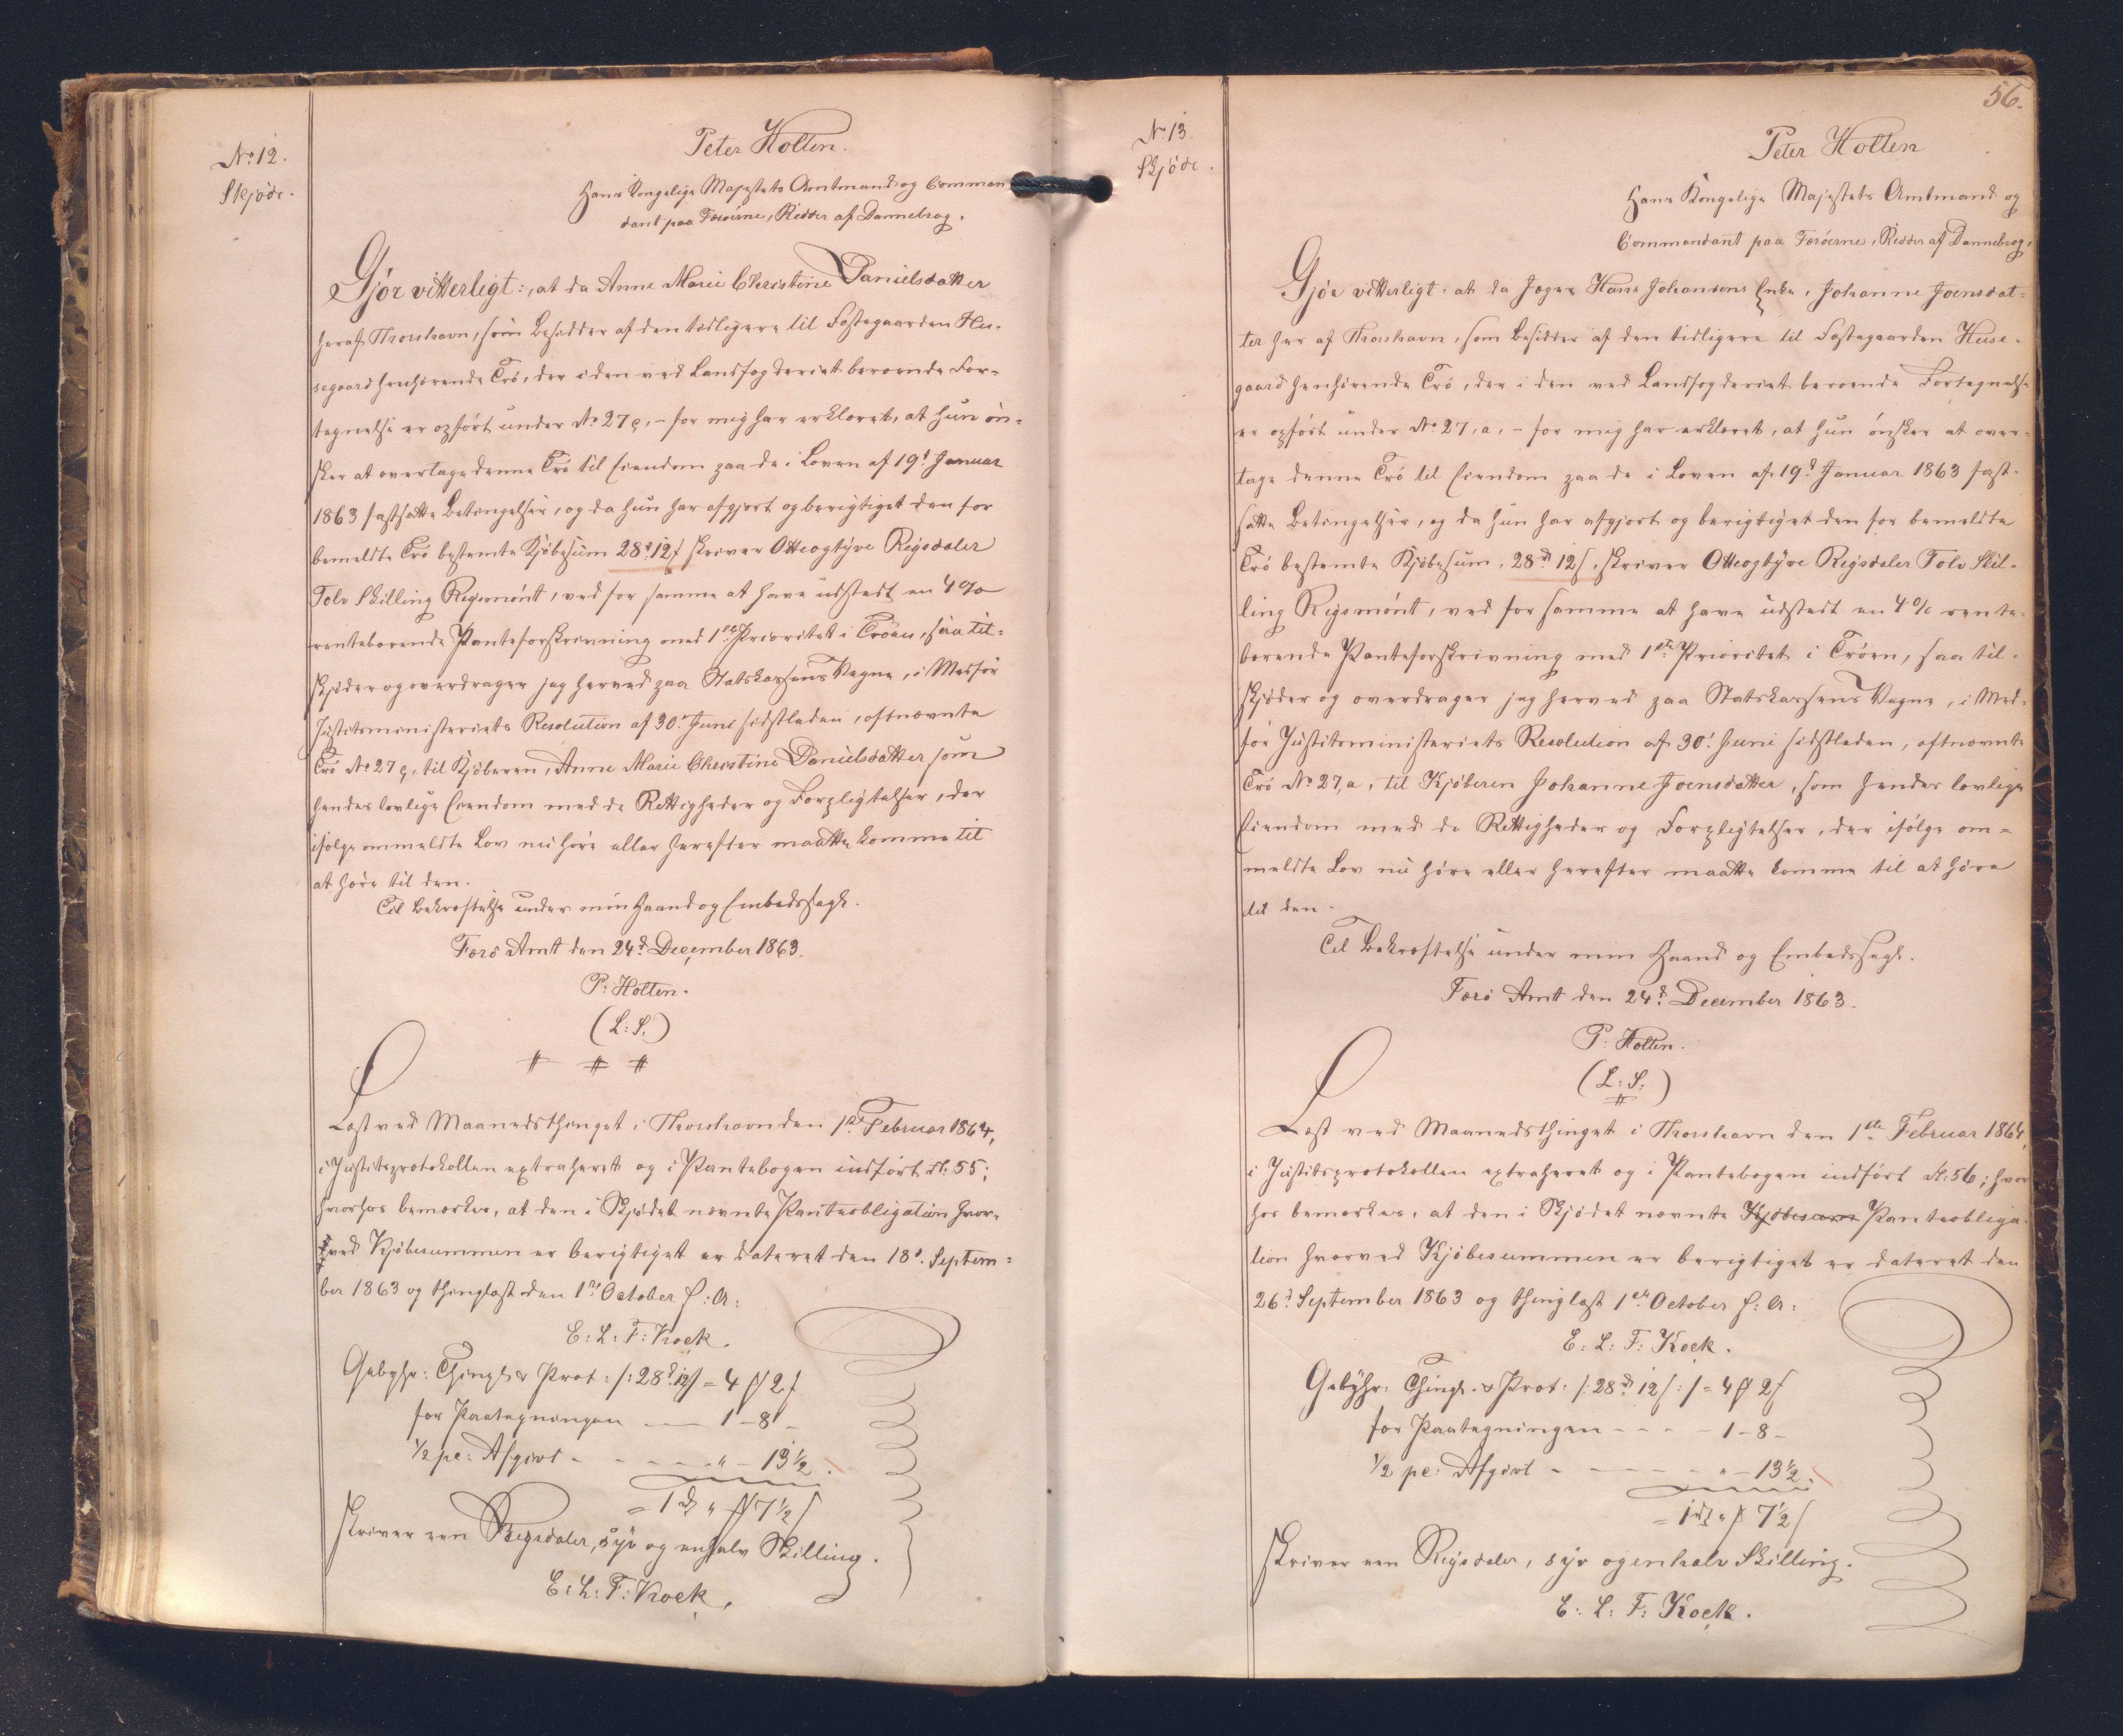 No. 12.
Skjöde.
Peter Holten.
Hans Kongelige Majestets Amtmand og Comman
dant paa Færöerne, Ridder af Dannebrog,
Gjör vitterligt:, at da Anne Marie Christine Danielsdatter
heraf Thorshavn, som Besidder af den tidligere til Fæstegaarden Hu-
segaard henhörende Trö, der i den ved Landfogderiet beroende For-
tegnelse er opfört under No. 27ç, - for mig har erklæret, at hun ön-
sker at overtage denne Trö til Eiendom paa de i Loven af 19d. Januar
1863 fastsatte Betingelser, og da hun har afgjort og berigtiget den for
bemeldte Trö bestemte Kjöbesum 28d. 12s skriver Otteogtyve Rigsdaler
Tolv Skilling Rigsmönt, ved for samme at have udstedt en 4%
rentebærende Panteforskrivning med 1ste Prioritet i Tröen, saa til-
skjöder og overdrager jeg herved paa Statskassens Vegne, i Medför
Justitsministeriets Resolution af 30. Juni sidstleden, oftnævnte
Trö No. 27ç, til Kjöberen, Anne Marie Christine Danielsdatter som
hendes lovlige Eiendom med de Rettigheder og Forpligtelser, der
ifölge ommeldte Lov nu höre eller herefter maatte komme til
at höre til den.
Til Bekræftelse under min Haand og Embedssegl.
Færö Amt den 24d. December 1863.
P: Holten.
(L: S.)
Læst ved Maanedsthinget i Thorshavn den 1ste Februar 1864,
i Justitsprotokollen extraheret og i Pantebogen indfört Fl: 55;
hvorhos bemærkes, at den i Skjödet nævnte Panteobligation hvor-
ved Kjöbesummen er berigtiget er dateret den 18d. Septem-
ber 1863 og thinglæst den 1ste October s: A:
E: L: F: Kock.
Gebyhr: Thingl. & Prot: /: 28d. 12s/ = 4 # 2s
for Paategningen — 1 - 8 -
1/2 pc: Afgivt - - - - - " - 13 1/2
= 1 d " # 7 1/2 s
skriver een Rigsdaler, syv og enhalv Skilling.
E: L: F: Kock.
56.
No 13.
Skjöde.
Peter Holten
Hans Kongelige Majestets Amtmand og
Commandant paa Færöerne, Ridder af Dannebrog,
Gjör vitterligt: at da Jæger Hans Johansens Enke, Johanne Joensdat-
ter her af Thorshavn, som Besidder af den tidligere til Fæstegaarden Huse-
gaard henhörende Trö, der i den ved Landfogderiet beroende Fortegnelse
er opfört under No. 27,a, - for mig har erklæret, at hun önsker at over-
tage denne Trö til Eiendom paa de i Loven af 19d. Januar 1863 fast-
satte Betingelser, og da hun har afgjort og berigtiget den for bemeldte
Trö bestemte Kjöbesum, 28d. 12s, skriver Otteogtyve Rigsdaler Tolv Skil-
ling Rigsmönt, ved for samme at have udstedt en 4% rente-
bærende Panteforskrivning med 1ste Prioritet i Tröen, saa til-
skjöder og overdrager jeg herved paa Statskassens Vegne, i Med-
för Justitsministeriets Resolution af 30. Juni sidstleden, oftnævnte
Trö No. 27,a, til Kjöberen Johanne Joensdatter, som hendes lovlige
Eiendom med de Rettigheder og Forpligtelser, der ifölge om-
meldte Lov nu höre eller herefter maatte komme til at höre
til den.
Til Bekræftelse under min Haand og Embedssegl.
Færö Amt den 24d. December 1863.
P: Holten.
(L: S:)
Læst ved Maanedsthinget i Thorshavn den 1ste Februar 1864,
i Justitsprotokollen extraheret og i Pantebogen indfört Fl: 56; hvor
hos bemærkes, at den i Skjödet nævnte Kjöbesum Panteobliga-
tion hvorved Kjöbesummen er berigtiget er dateret den
26d. September 1863 og thinglæst 1ste October s: A:
E: L: F: Kock.
Gebyhr: Thingl. & Prot: /: 28d. 12s :/ = 4 # 2s
for Paategningen - - - - 1 - 8 -
1/2 pc: Afgivt - - - - - " - 13 1/2
= 1d " # 7 1/2 s
skriver een Rigsdaler, syv og enhalv Skilling.
E: L: F: Kock.